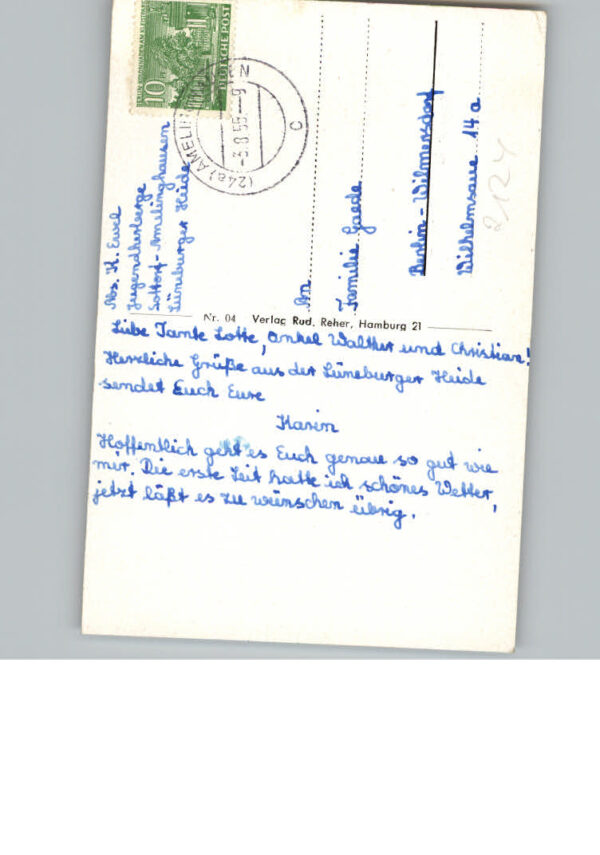 10
DEUTSCHE POST
(24a) AMELIN
-3.8.55-9
N
c
Abs. K. Ewel
Jugendherberge
Sottorf-Amelinghausen
Lüneburger Heide
An
Familie Gaede
Berlin-Wilmersdorf
Wilhelmsaue 14a
212Y
Nr. 04 Verlag Rud. Reher, Hamburg 21
Liebe Tante Lotte, Onkel Walther und Christian!
Herzliche Grüße aus der Lüneburger Heide
sendet Euch Eure
Karin
Hoffentlich geht es Euch genau so gut wie
mir. Die erste Zeit hatte ich schönes Wetter,
jetzt läßt es zu wünschen übrig.